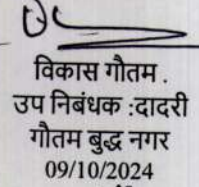 विकास गौतम .
उप निबंधक :दादरी
गौतम बुद्ध नगर
09/10/2024